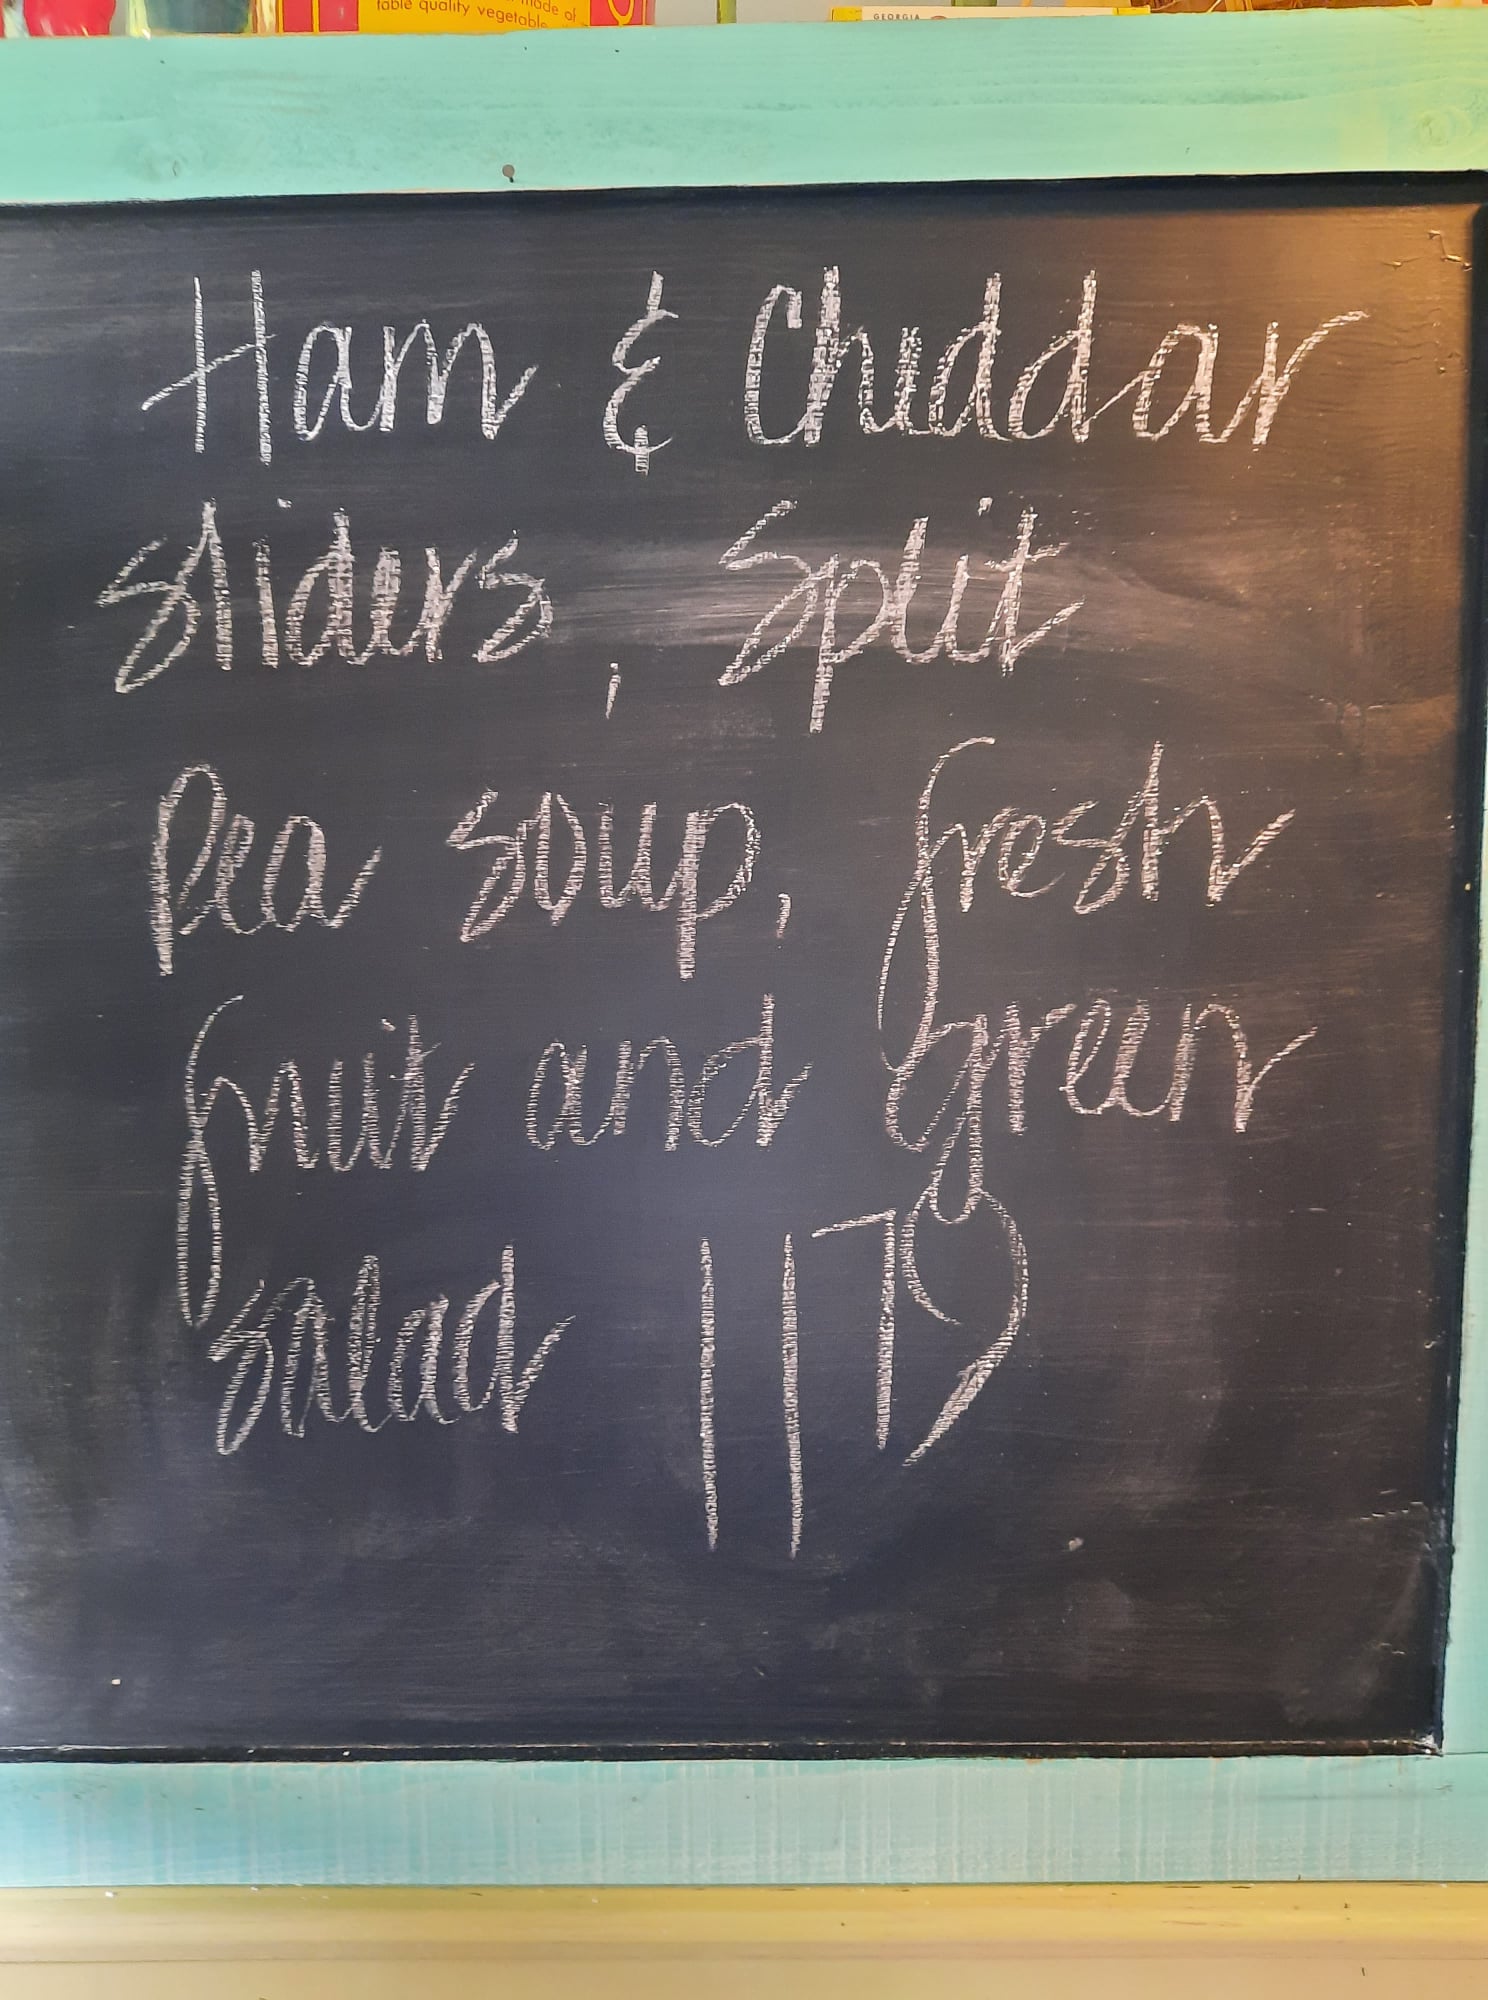 made of
table quality vegetable
GEORGIA
Ham & Cheddar
sliders, Split
Pea soup, fresh
fruit and green
salad 1179